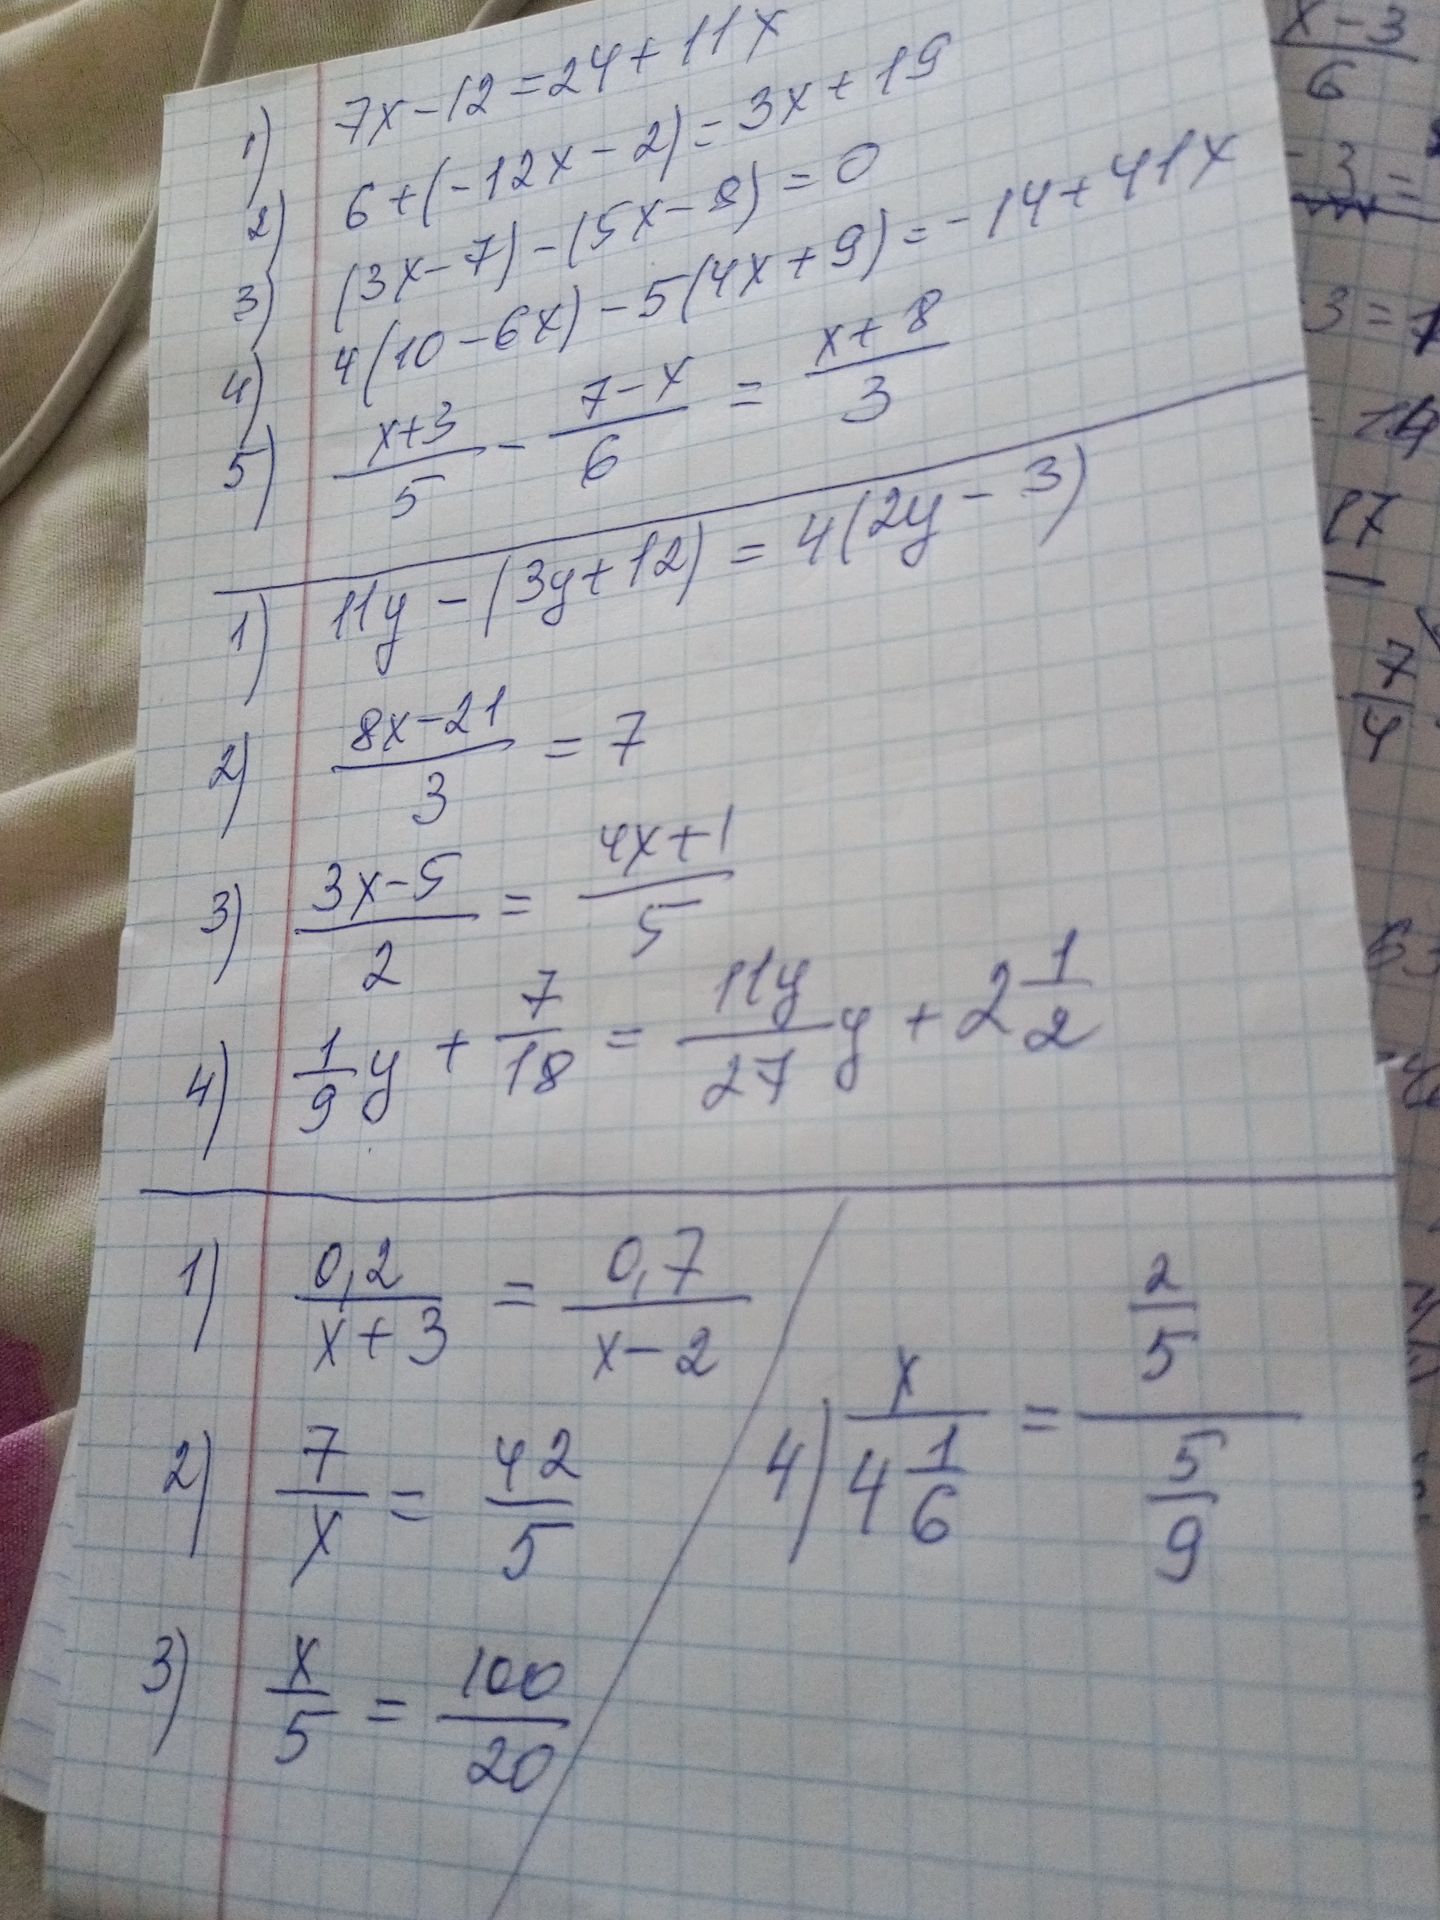 1) 7x-12=24+11x
2) 6+(-12x-2)=3x+19
3) (3x-7)-(5x-8)=0
4) 4(10-6x)-5(4x+9)=-14+41x
5) \frac{x+3}{5} - \frac{7-x}{6} = \frac{x+8}{3}
1) 11y-(3y+12)=4(2y-3)
2) \frac{8x-21}{3} = 7
3) \frac{3x-5}{2} = \frac{4x+1}{5}
4) \frac{1}{9}y + \frac{7}{18} = \frac{11y}{27}y + 2\frac{1}{2}
1) \frac{0,2}{x+3} = \frac{0,7}{x-2}
2) \frac{7}{x} = \frac{42}{5}
3) \frac{x}{5} = \frac{100}{20}
4) \frac{x}{4\frac{1}{6}} = \frac{\frac{2}{5}}{\frac{5}{9}}
\frac{x-3}{6}
-3=
3=1
17
\frac{7}{4}